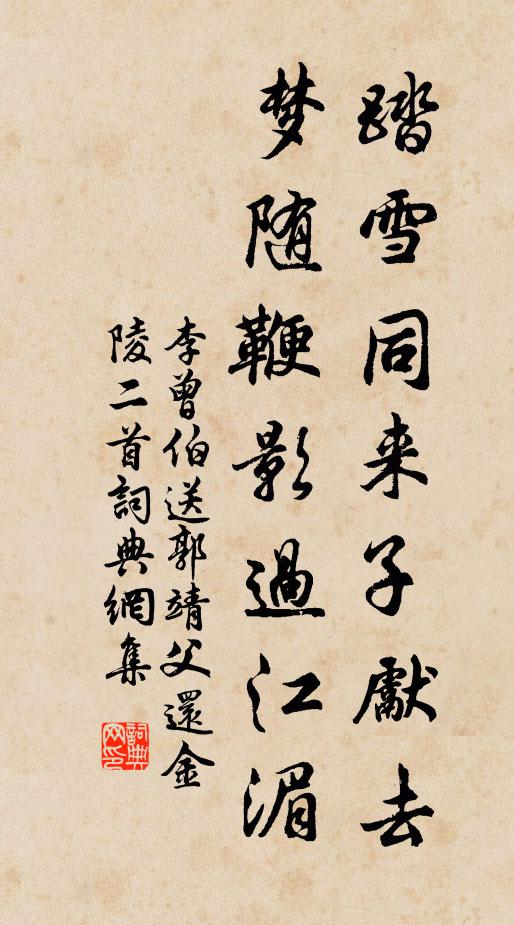 踏雪同来子獻去
梦随鞭影過江湄
李曾伯送郭靖父還金
陵二首詞典網集
詞典
网印